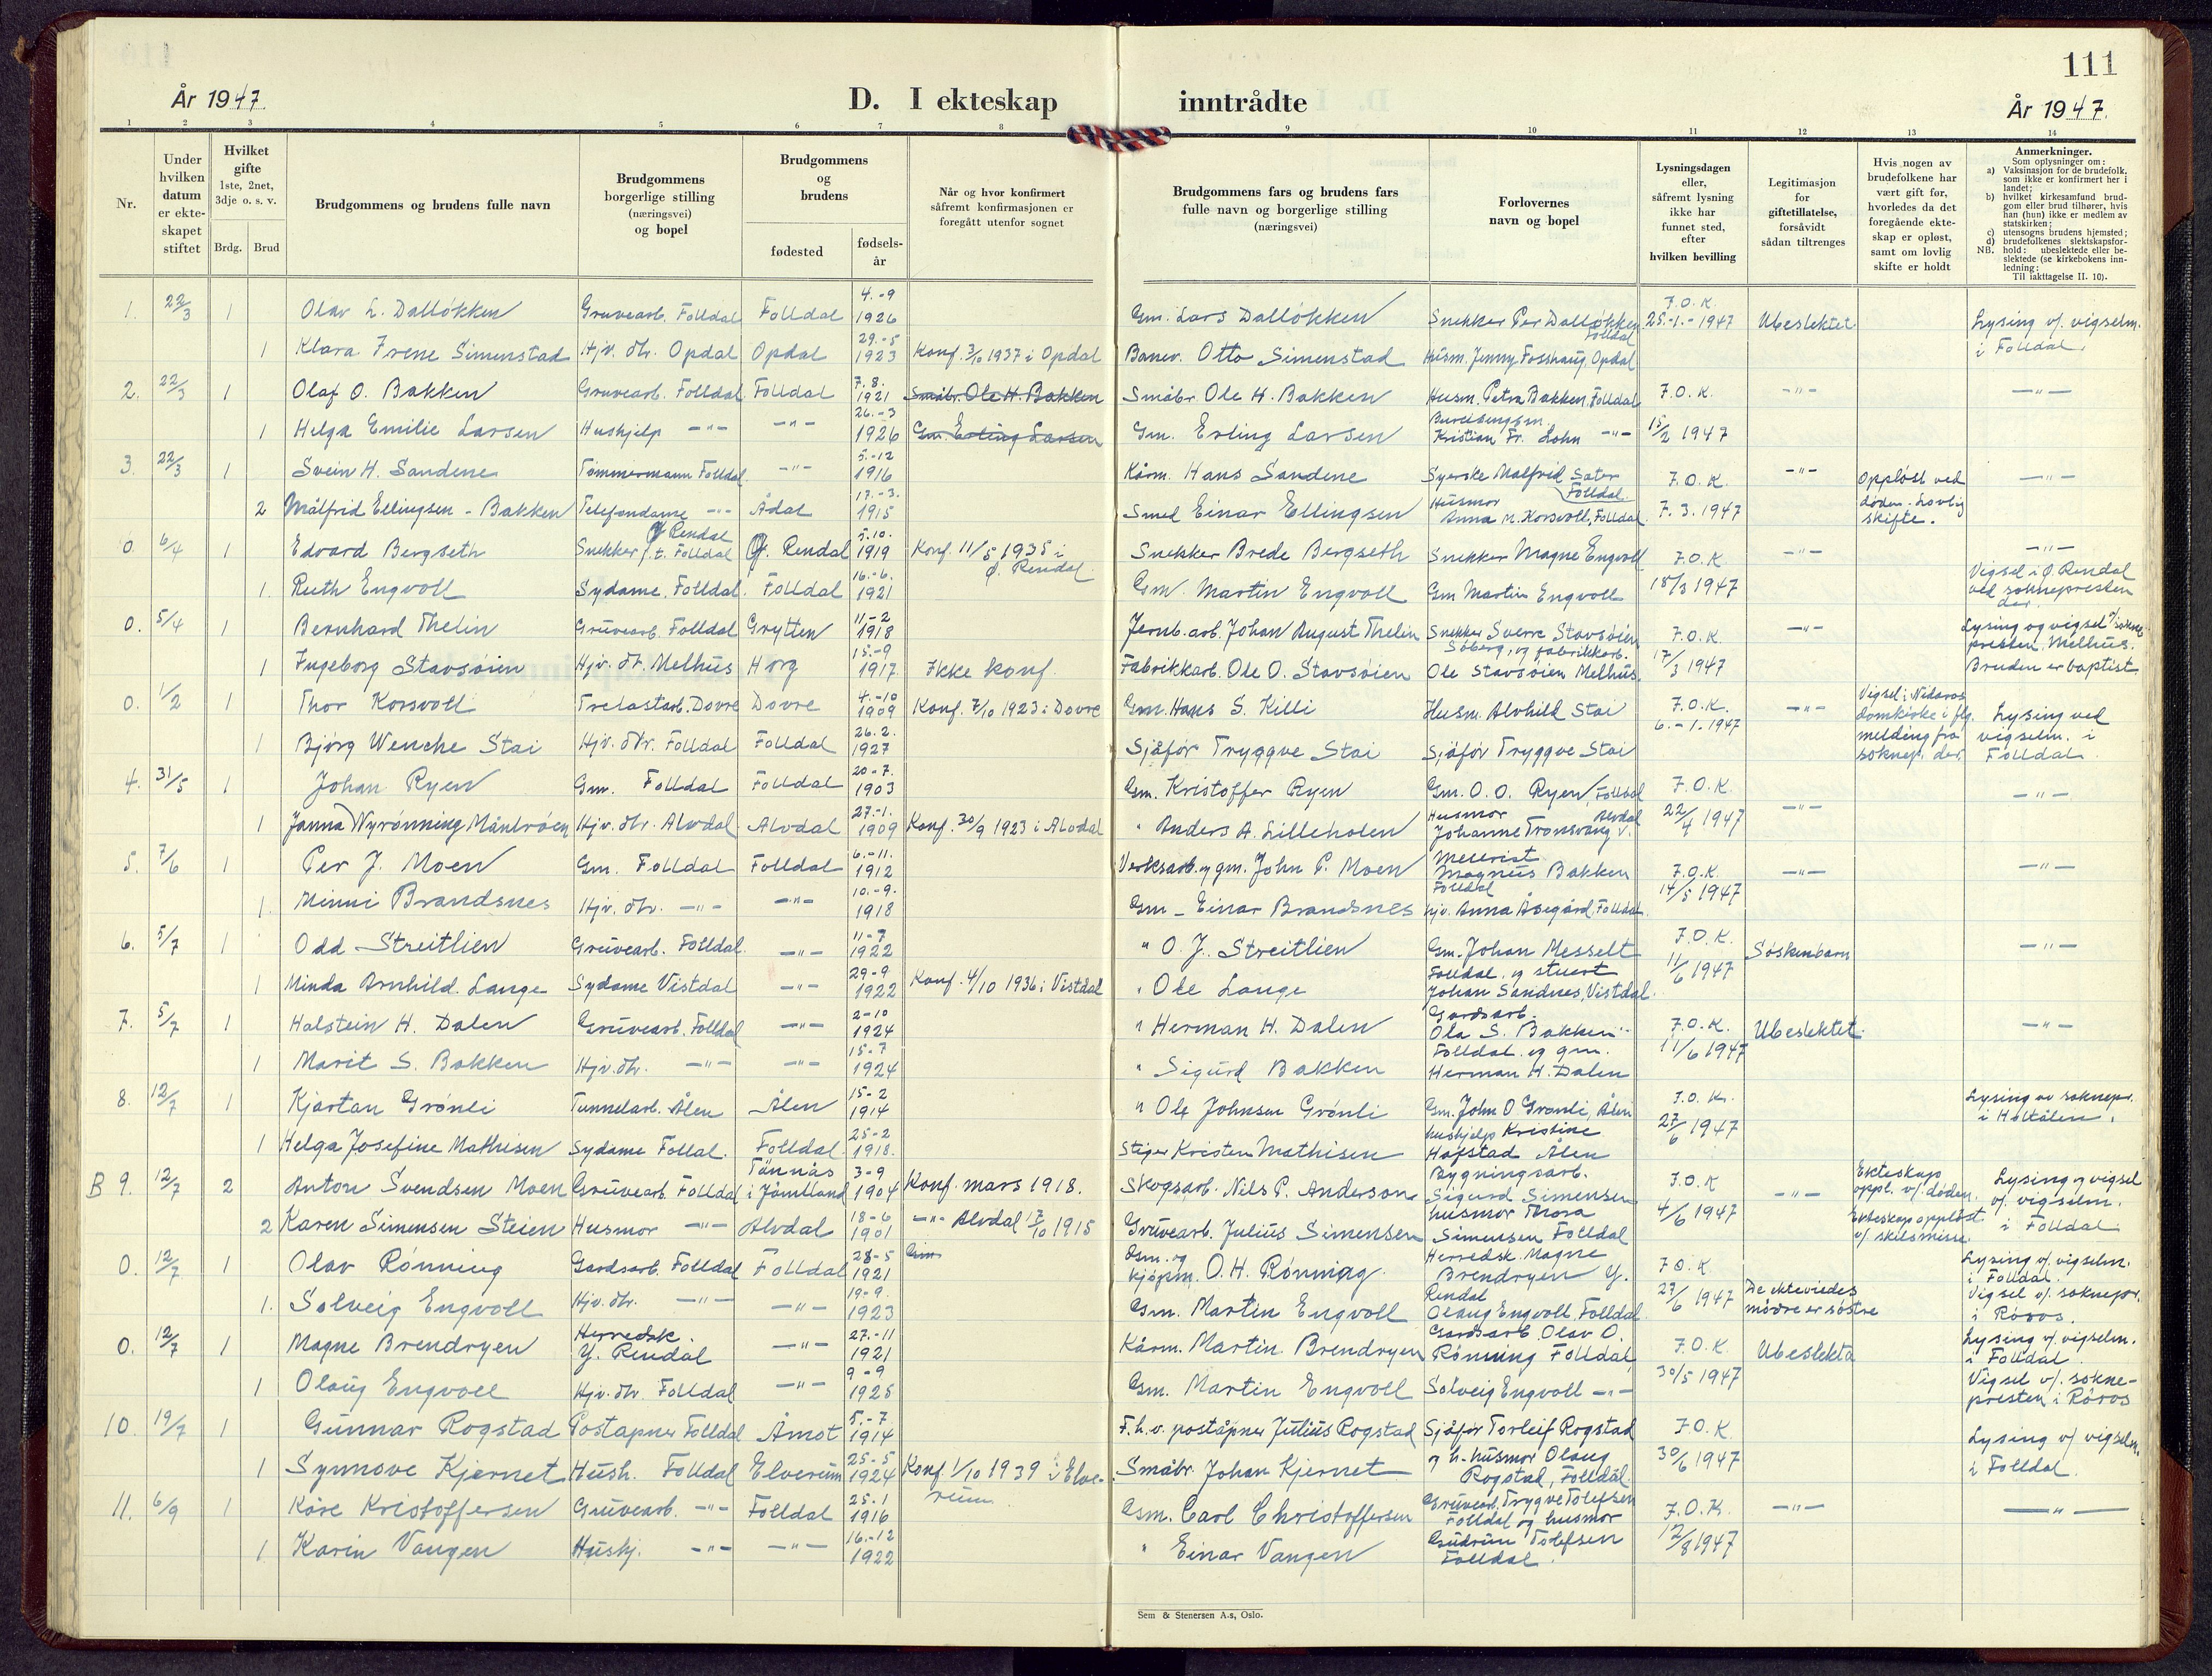 111
År 1947.
D. I ekteskap inntrådte
År 1947.
1 2 3 4 5 6 7 8 9 10 11 12 13 14
Nr.
Under hvilken datum er ekteskapet stiftet
Hvilket gifte 1ste, 2net, 3dje o. s. v.
Brdg. Brud
Brudgommens og brudens fulle navn
Brudgommens borgerlige stilling (næringsvei) og bopel
Brudgommens og brudens
fødested
fødselsår
Når og hvor konfirmert såfremt konfirmasjonen er foregått utenfor sognet
Brudgommens fars og brudens fars fulle navn og borgerlige stilling (næringsvei)
Forlovernes navn og bopel
Lysningsdagen eller, såfremt lysning ikke har funnet sted, efter hvilken bevilling
Legitimasjon for giftetillatelse, forsåvidt sådan tiltrenges
Hvis nogen av brudefolkene har vært gift før, hvorledes da det foregående ekteskap er opløst, samt om lovlig skifte er holdt
Anmerkninger.
Som oplysninger om:
a) Vaksinasjon for de brudefolk, som ikke er konfirmert her i landet;
b) hvilket kirkesamfund brudgom eller brud tilhører, hvis han (hun) ikke er medlem av statskirken;
c) utensogns brudens hjemsted;
d) brudefolkenes slektskapsforhold: ubeslektede eller beslektede (se kirkebokens innledning:
NB. Til iakttagelse II. 10).
1. 22/3 1 Olav L. Dalløkken Gruvearb. Folldal Folldal 4.-9 1926 Gm. Lars Dalløkken Snekker Per Dalløkken Folldal F.O.K. 25.-1.-1947 Ubeslektet Lysing v/. vigselm. i Folldal.
1 Klara Irene Simenstad Hjv. dtr. Opdal Opdal 29.-5 1923 Konf. 3/10 1937 i Opdal Banev. Otto Simenstad Husm. Jenny Fosshaug, Opdal
2. 22/3 1 Olaf O. Bakken Gruvearb. Folldal Folldal 7.8. 1921 Småbr. Ole H. Bakken Småbr. Ole H. Bakken Husm. Petra Bakken, Folldal F.O.K. -"- -"-
1 Helga Emilie Larsen Hushjelp -"- -"- 26.-3 1926 Gm. Erling Larsen Gm. Erling Larsen Kristian Fr. Lohn -"- 15/2 1947
3. 22/3 1 Svein H. Sandene Tømmermann Folldal -"- 5.-12 1916 Kårm. Hans Sandene Syerske Malfrid Sater Folldal F.O.K. -"- Oppløst ved døden. Lovlig skifte. -"-
2 Målfrid Ellingsen - Bakken Telefondame -"- Ådal 17.-3. 1915 Smed Einar Ellingsen Husmor Anna M. Korsvoll, Folldal. 7.3.1947
0. 6/4 1 Edvard Bergseth Snekker Ø. Rendal f.t. Folldal Ø. Rendal 5.10. 1919 Konf. 11/5 1935 i Ø. Rendal. Snekker Brede Bergseth Snekker Magne Engvoll F.O.K. -"- -"-
1. Ruth Engvoll Sydame. Folldal. Folldal 16.-6. 1921 Gm. Martin Engvoll Gm Martin Engvoll 18/3 1947 Vigsel i Ø. Rendal ved soknepresten der.
0. 5/4 1 Bernhard Thelin Gruvearb. Folldal Grytten 11.-2 1918 Jernb.arb. Johan August Thelin Snekker Sverre Stavsøien Søberg, og fabrikkarb. F.O.K. -"- Lysing og vigsel v/ sokne-presten. Melhus.
1 Ingeborg Stavsøien Hjv. dt. Melhus Horg 15.-9 1917 Ikke konf. Fabrikkarb. Ole O. Stavsøien Ole Stavsøien Melhus. 17/3 1947 Bruden er baptist
0. 1/2 1 Thor Korsvoll Trelastarb. Dovre Dovre 4.-10 1909 Konf. 7/10 1923 i Dovre Gm. Hans S. Killi Husm. Alvhild Stai F.O.K. 6.-1.1947 -"- Vigsel i Nidaros domkirke i flg. melding fra soknep. der. Lysing ved vigselm. i Folldal.
1 Bjørg Wenche Stai Hjv. dtr. Folldal Folldal 26.2. 1927 Sjåfør Tryggve Stai Sjåfør Tryggve Stai
4. 31/5 1 Johan Ryen Gm. Folldal Folldal 20-7. 1903 Gm. Kristoffer Ryen Gm. O.O. Ryen, Folldal F.O.K. -"-
1 Janna Nyrønning Måntrøen Hjv. dtr. Alvdal Alvdal 27.-1. 1909 Konf. 30/9 1923 i Alvdal " Anders A. Lilleholen Husmor Johanne Tronsvang Alvdal 22/4 1947 -"-
5. 7/6 1 Per J. Moen Gm. Folldal Folldal 6.-11. 1912 Verksarb. og gm. John P. Moen Meierist Magnus Bakken Folldal F.O.K. -"- -"-
1. Minni Brandsnes Hjv. dtr. -"- -"- 10.-9. 1918 Gm - Einar Brandsnes hjv. Anna Åsegård, Folldal. 14/5 1947
6. 5/7 1 Odd Streitlien Gruvearb. Folldal. -"- 11-7 1922 " O. J. Streitlien Gm. Johan Messelt Folldal. og stuert F.O.K. Søskenbarn -"-
1 Minda Arnhild. Lange Sydame Vistdal -"- 29-9 1922 Konf. 4/10 1936 i Vistdal " Ole Lange Johan Sandnes, Vistdal. 11/6 1947
7. 5/7 1 Halstein H. Dalen Gruvearb. Folldal -"- 2-10 1924 " Herman H. Dalen Gardsarb. Ola S. Bakken F.O.K. Ubeslektet. -"-
1 Marit S. Bakken Hjv. dtr. -"- -"- 15-7 1924 " Sigurd Bakken Folldal. og gm. Herman H. Dalen 11/6 1947
8. 12/7 1 Kjartan Grønli Tunnelarb. Ålen Ålen 15-2 1914 " Ole Johnsen Grønli Gm. John O Grønli, Ålen F.O.K. Lysing av soknepr. i Haltålen.
1 Helga Josefine Mathisen Sydame Follal. Folldal 25-2 1918. Stiger Kristen Mathisen hushjelp Kristine Hofstad Ålen 27/6 1947
B 9. 12/7 2 Anton Svendsen Moen Gruvearb. Folldal Tännäs i Jämtland 3-9 1904 Konf. mars 1918. Skogsarb. Nils P. Anderson Bygningsarb. Sigurd Simensen F.O.K -"- Ekteskap oppl. v/. døden. Lysing og vigsel v/. vigselm.
2 Karen Simensen Steien Husmor -"- Alvdal 18-6 1901 -"- Alvdal 17/10 1915 Gruvearb. Julius Simensen husmor Thora Simensen Folldal 4/6 1947 Ekteskap oppløst v/ skilsmisse. i Folldal
0. 12/7 1 Olav Rønning Gardsarb. Folldal Folldal 28-5 1921 Gm Gm. og kjøpm. O.H. Rønning. Herredsk. Magne Brendryen Y. Rendal F.O.K Lysing v/. vigselm. i Folldal.
1. Solveig Engvoll Hjv. dtr. -"- -"- 19-9. 1923 Gm. Martin Engvoll Olaug Engvoll, Folldal 27/6 1947 De ekteviedes mødre er søstre Vigsel v/. soknepr. i Røros.
0. 12/7 1 Magne Brendryen Herredsk. Y. Rendal -"- 27.-11 1921 Kårm. Martin Brendryen Gardsarb. Olav O. Rønning Folldal F.O.K. Ubeslekta Lysing v/. vigselm. i Folldal.
1 Olaug Engvoll Hjv. dtr. Folldal -"- 9-9 1925 Gm. Martin Engvoll Solveig Engvoll -"- 30/5 1947 Vigsel v/. sokne-presten i Røros
10. 19/7 1 Gunnar Rogstad Postapner Folldal Åmot 5.-7 1914 F.h.v. poståpner Julius Rogstad Sjåfør Torleif Rogstad F.O.K. Lysing v/ vigselm. i Folldal.
1 Synnøve Kjernet Hush. Folldal Elverum 25-5 1924 Konf. 1/10 1939 i Elverum Småbr. Johan Kjernet og h. husmor Olaug Rogstad, Folldal. 30/6 1947
11. 6/9 1 Kåre Kristoffersen Gruvearb. -"- Folldal 25.1 1916 Gm. Carl Christoffersen Gruvearb. Trygve Tolefsen Folldal og husmor F.O.K. -"- -"-
1. Karin Vangen Hushj. -"- -"- 16.-12 1922 " Einar Vangen Gudrun Tolefsen Folldal. 12/8 1947
Sem & Stenersen A-s, Oslo.